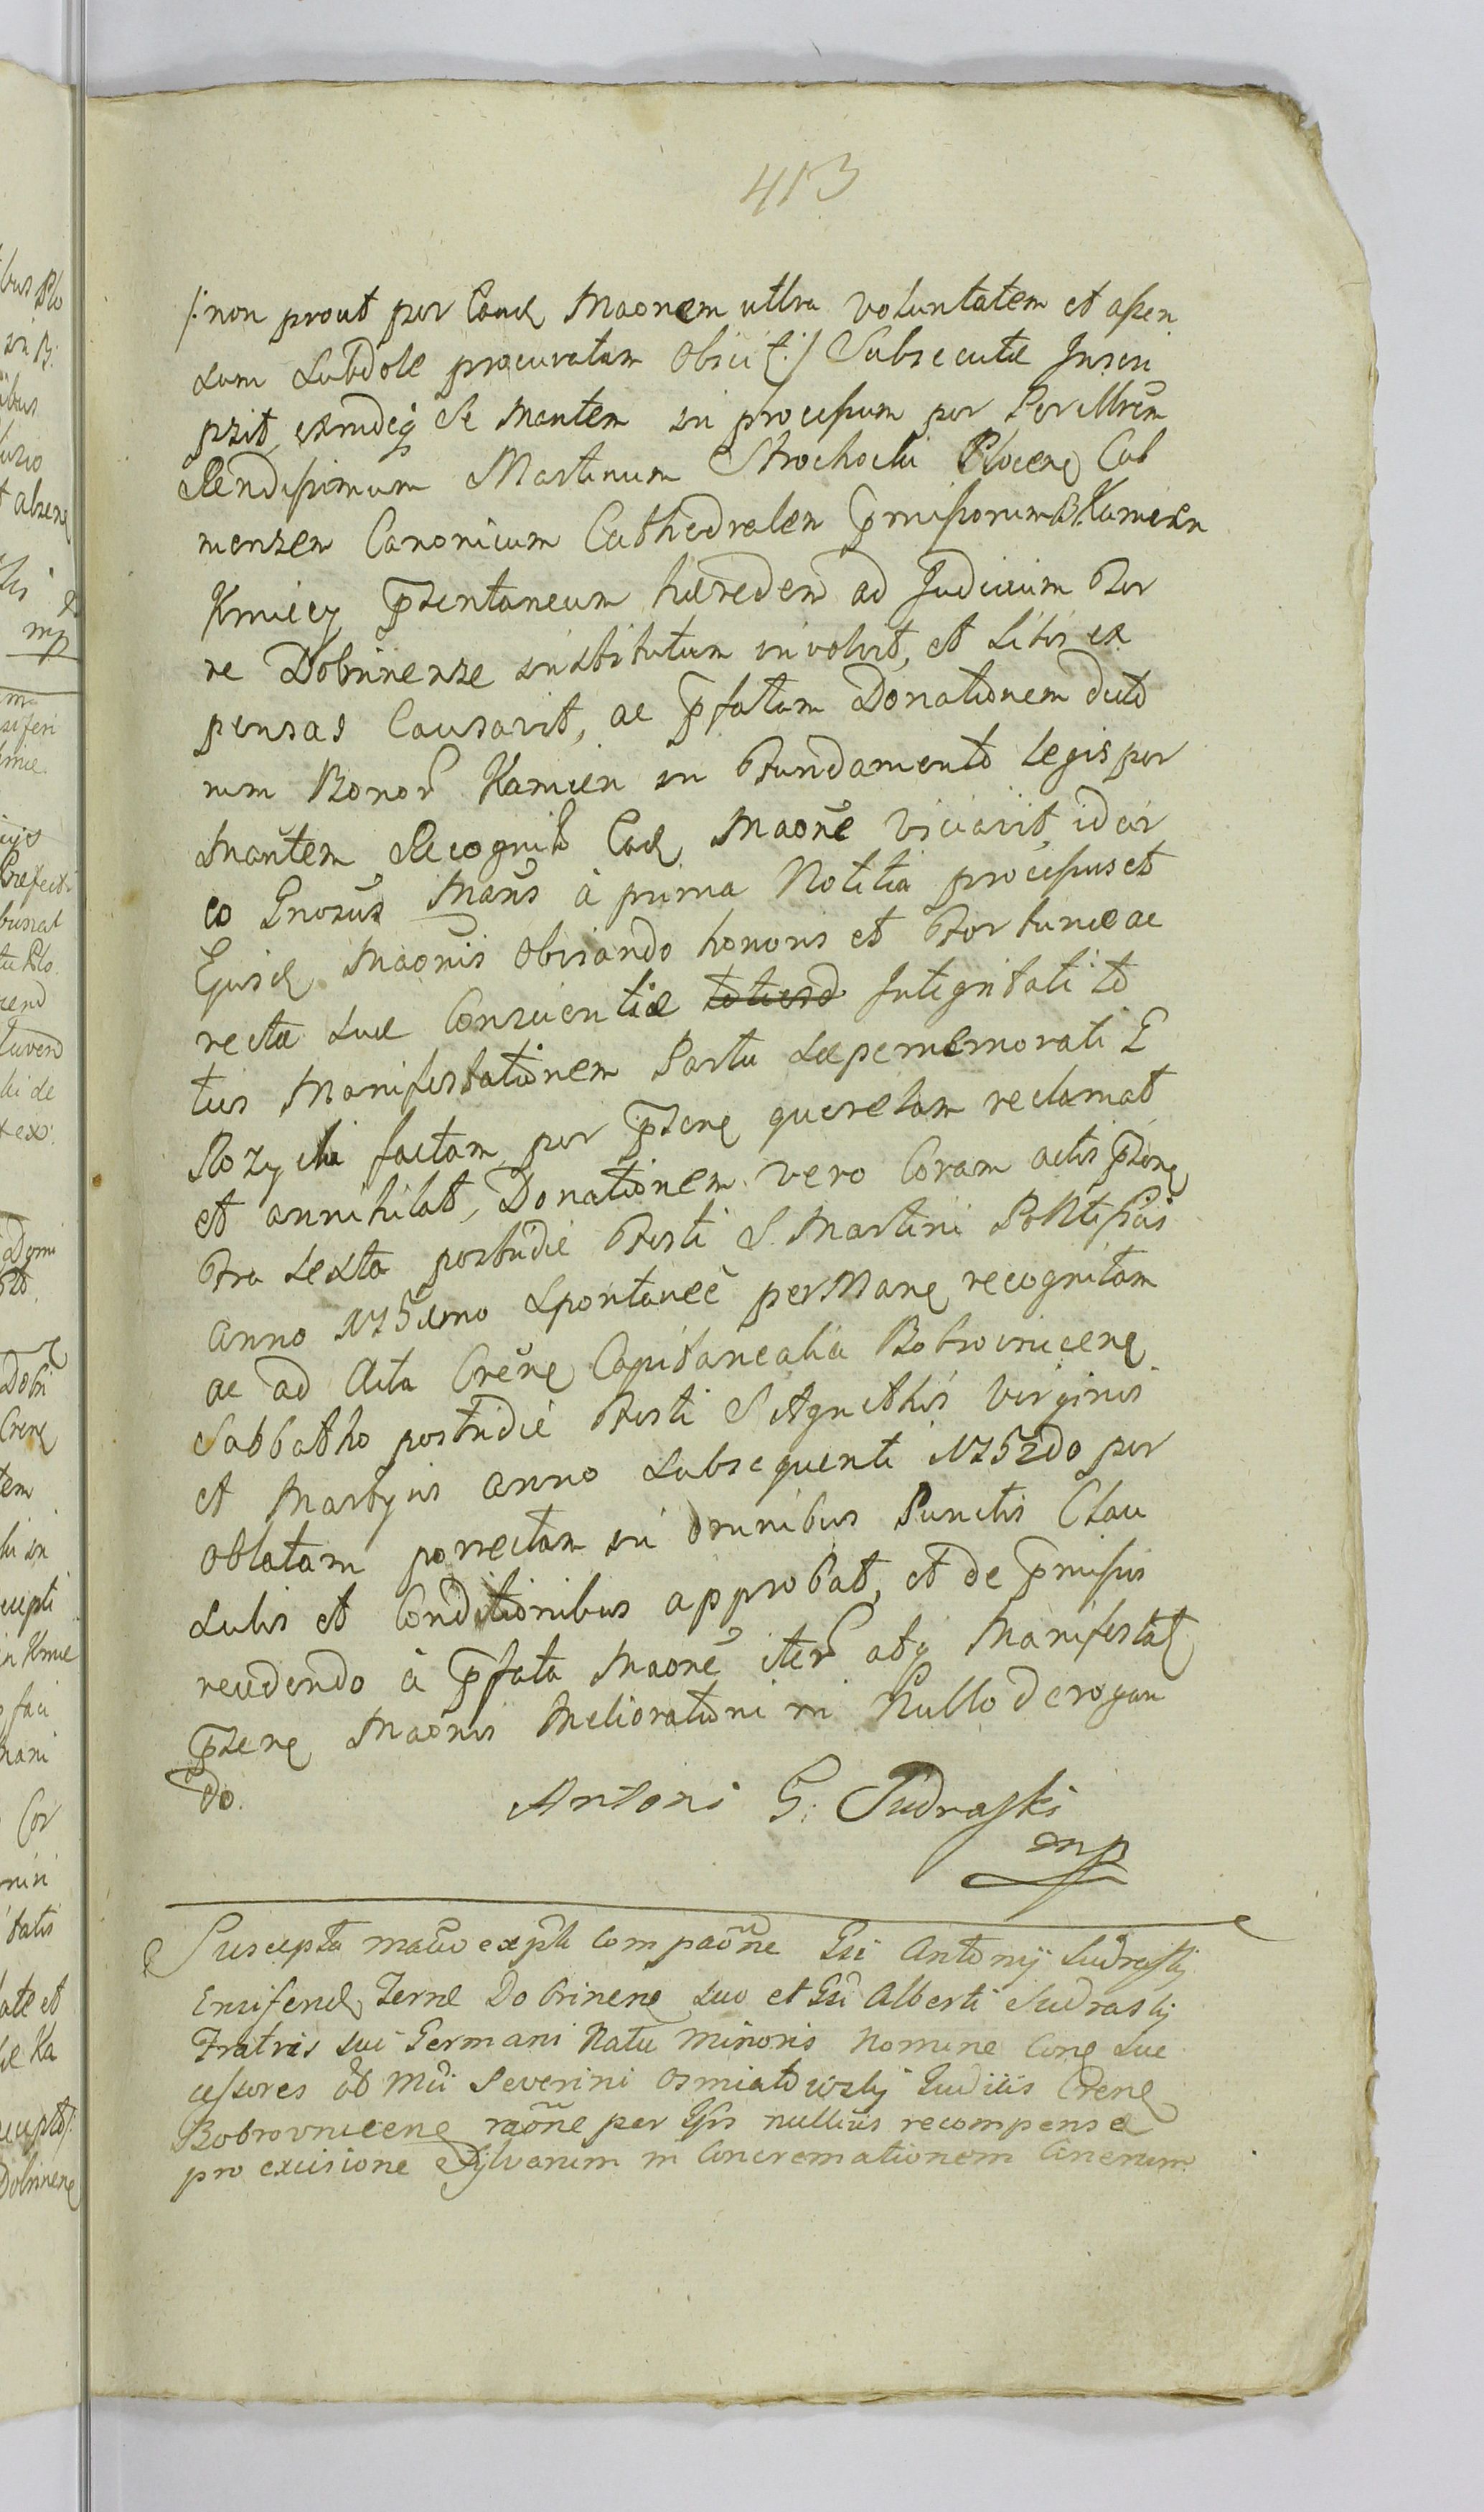 413
/: non prout per Eand Maonem ultra voluntatem et assen
sum subdole procuratam Obiicit :/ Subsecutæ Inscri
psit, exindeq se Mantem in processum per Perillrem
Rendissimum Martinum Strochocki Plocens Cul
mensem Canonicum Cathedralem pmissorum B. Kamien
Kmiecy psentaneum hæredem ad Judicium Ter
re Dobrinense institutum involvit, et Litis ex
pensas Causavit, ac pfatam Donationem
num Bonor Kamien in Fundamento Legis per
Mantem Recognit Ead Maone viciavit, idcir
co Gnosus Mans à prima Notitia processus et
Ejusd Maonis obviando honoris et Fortunæ ac
rectæ suæ Conscientiæ Integritati to
tius Manifestationem Parte sæpememorati G
Rozycki factam per psens querelam reclamat
et annihilat, Donationem vero Coram actis psens
Fra sexta postridie Festi S. Martini Pontificis
Anno 175imo Spontaneè per Mane recognitam
ac ad Acta Crens Capitanealia Bobrovnicens
Sabbatho postridiè Festi S Agnethis Virginis
et Martyris Anno Subsequenti 1752do per
Oblatam porrectam in omnibus Punctis Clau
sulis et Conditionibus approbat, et de pmissis
recedendo à pfata Maone iter atq Manifestat
psens Maonis Meliorationi in Nullo derogan
do.
Antoni G: Sudraski
mp
Suscepta expti Compaone Gsi Antonij Sudraskj
Ensiferid Terræ Dobrinens suo et Gsi Alberti Sudraskj
Fratris sui Germani Natu Minoris Nomine Cons suc
cessores ol Mci Severini Osmiałowskj Judicis Crens
Bobrovnicens raone per Ipsos nullius recompensæ
pro excisione Sylvarum in Concremationem Cinerum